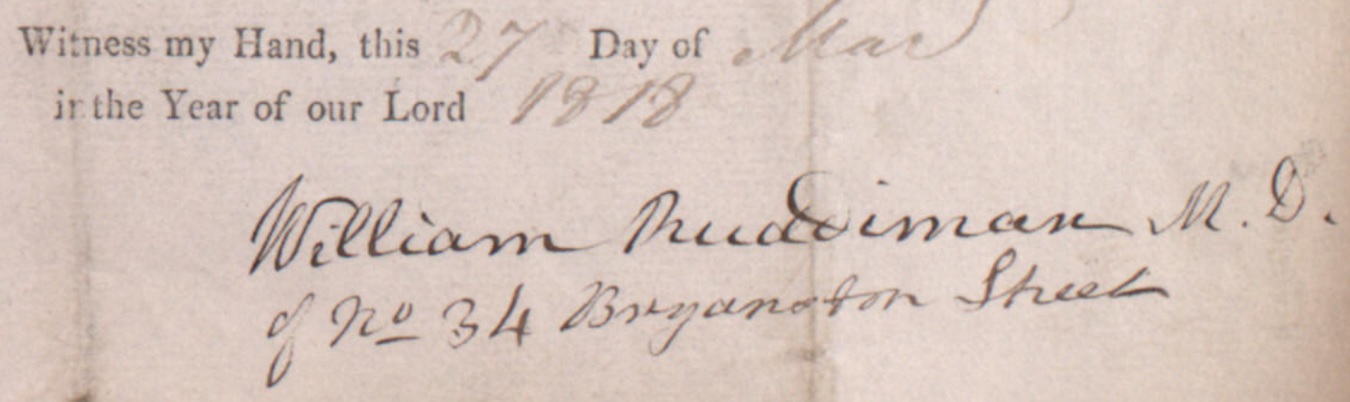 Witness my Hand, this 27 Day of Mar
in the Year of our Lord 1818
William Ruddiman M. D.
of No 34 Bryanston Street